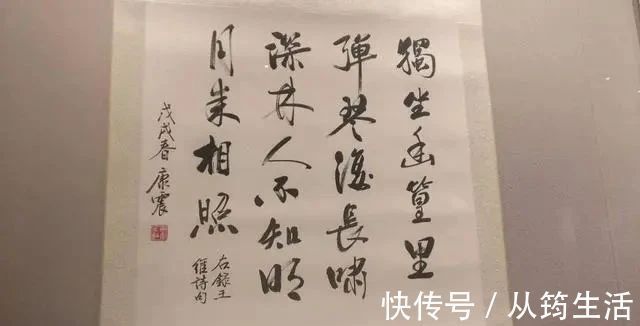 獨坐幽篁里
彈琴復長嘯
深林人不知明
月来相照
右録王
維詩句
戊戌春 康震
快传号 / 从筠生活